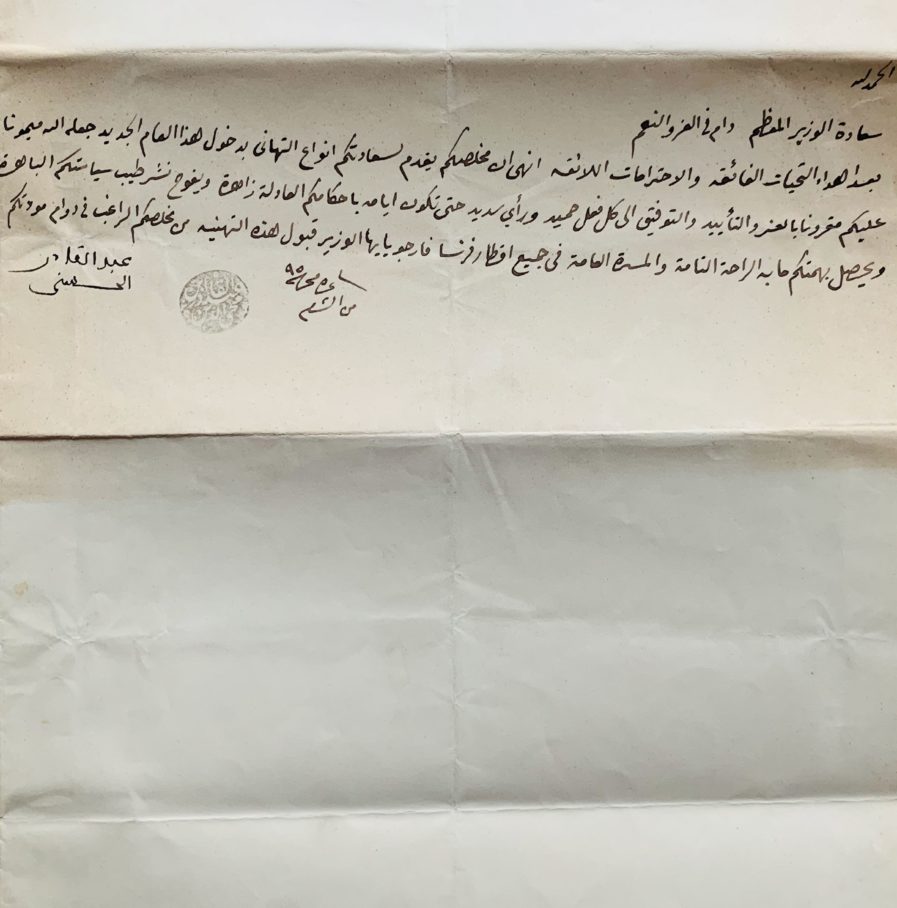 الحمد لله
سعادة الوزير المعظم دام في العز والنعم
بعد اهداء التحيات الفائقه والاحترامات اللائقه انهى ان مخلصكم يقدم لسعادتكم انواع التهانى بدخول هذا العام الجديد جعله الله ميمونا
عليكم مقرونا بالعز والتأييد والتوفيق الى كل فعل حميد ورأي سديد حتى تكون ايامه باحكامكم العادلة زاهرة ويفوح نشر طيب سياستكم الباهرة
ويحصل بهمتكم ما به الراحة التامة والمسرة العامة في جميع اقطار فرنسا فارجو يا ايها الوزير قبول هذه التهنيه من مخلصكم الراغب في دوام مودتكم
عبد القادر
الحسني
٩٥
من الشام